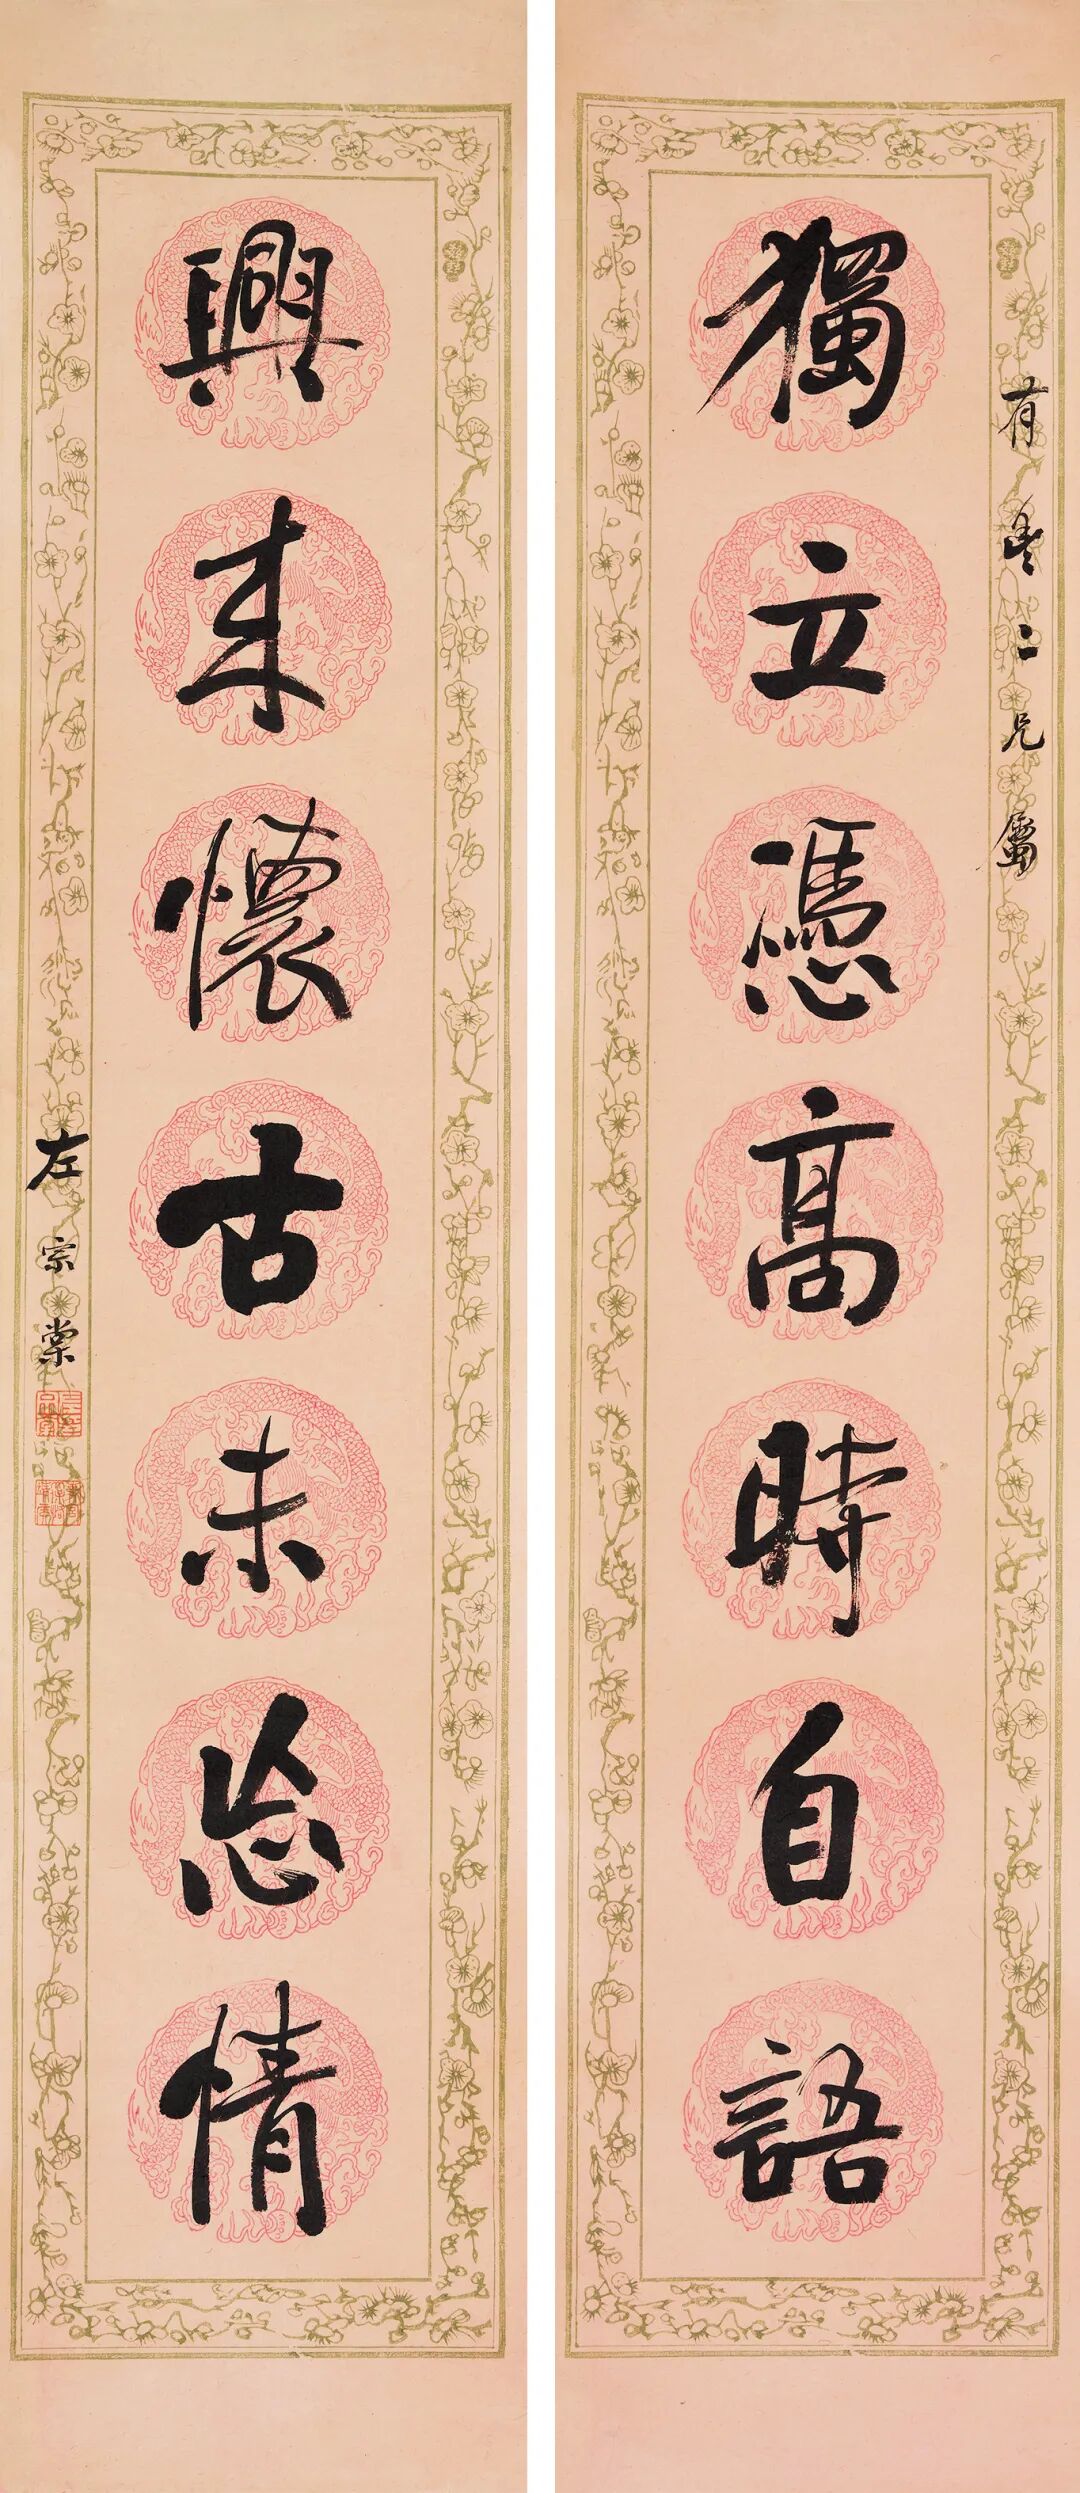 有 二兄屬
獨立憑高時自語
興来懷古未忘情
左宗棠